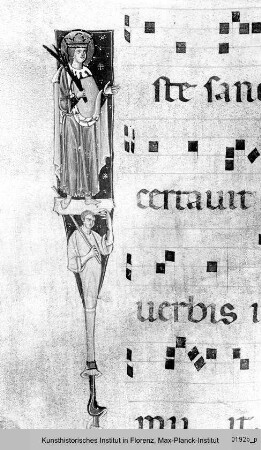 ste sanc
certavit
verbis i
mu it
Kunsthistorisches Institut in Florenz, Max-Planck-Institut 2192b_p